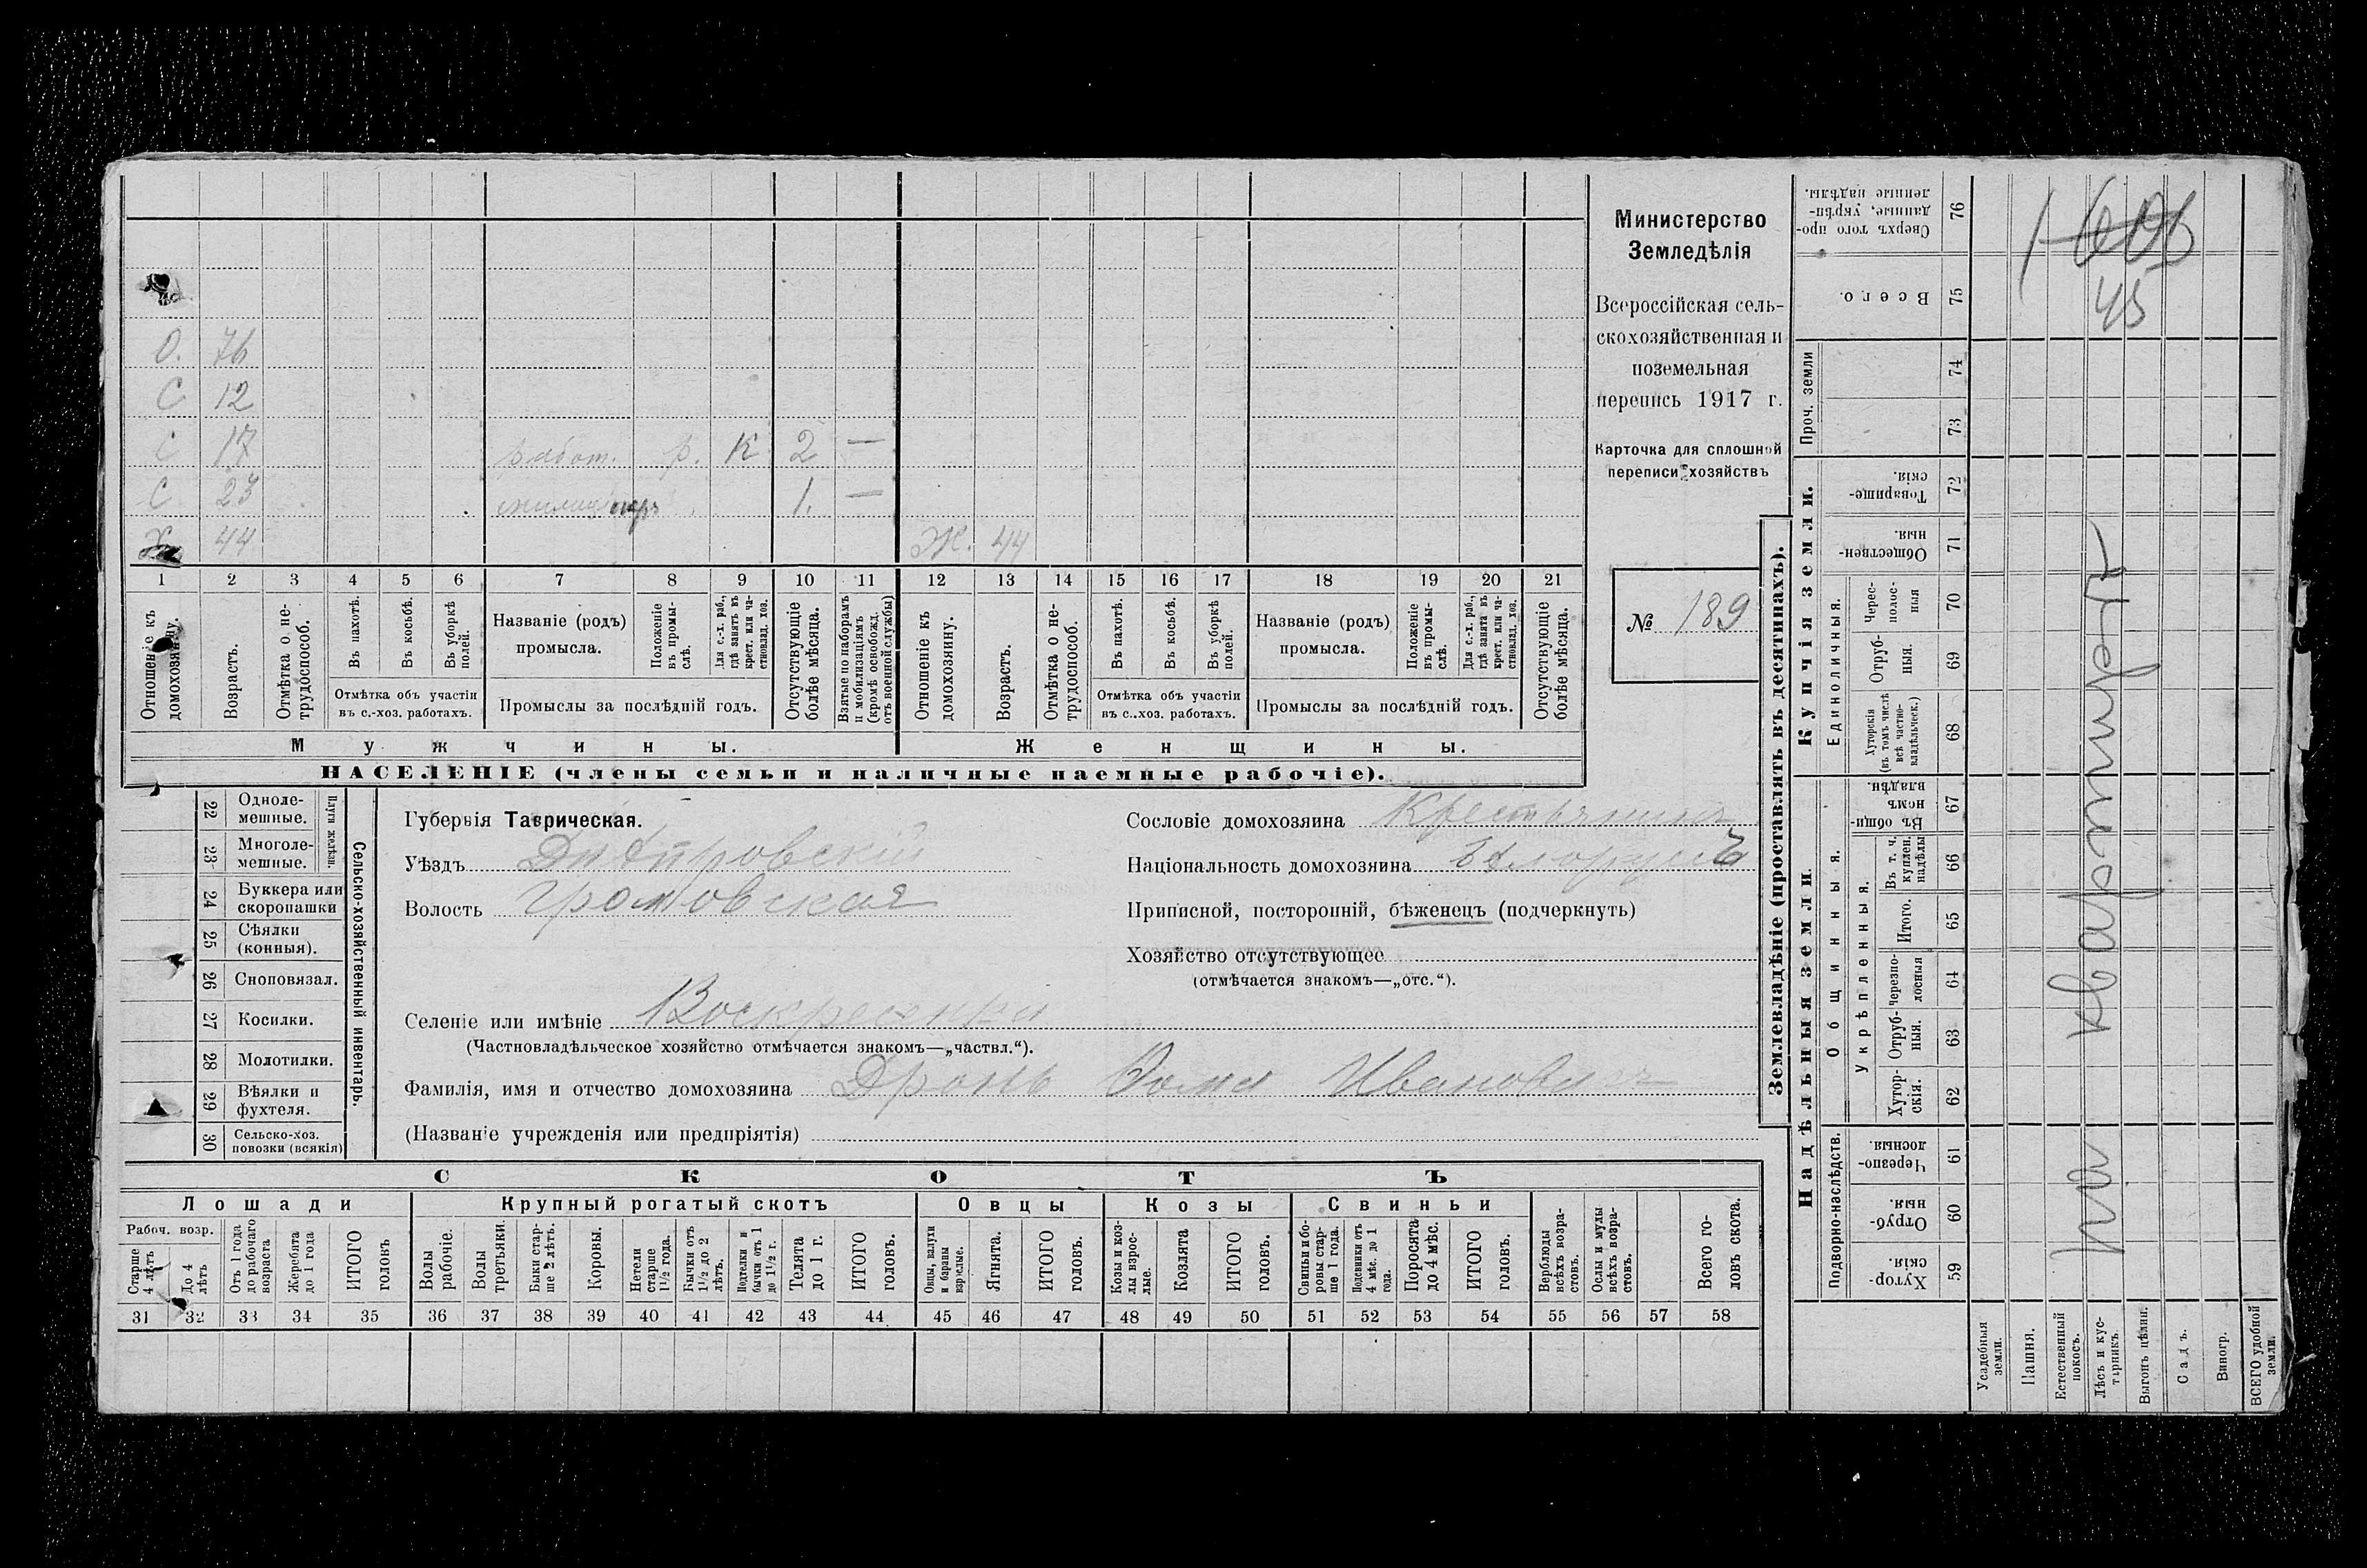 О. 76
С 12
С 17 работ. р. К 2 —
С 23 1. —
Х 44 Ж. 44
1 2 3 4 5 6 7 8 9 10 11 12 13 14 15 16 17 18 19 20 21
Отношеніе къ домохозяину.
Возрастъ.
Отмѣтка о не-
трудоспособ.
Въ пахотѣ.
Въ косьбѣ.
Въ уборкѣ
полей.
Отмѣтка объ участіи
въ с.-хоз. работахъ.
Названіе (родъ)
промысла.
Положеніе
въ промы-
слѣ.
Для с.-х. раб.,
гдѣ занятъ въ
крест. или ча-
стновлад. хоз.
Промыслы за послѣдній годъ.
Отсутствующіе
болѣе мѣсяца.
Взятые по наборамъ
и мобилизаціямъ
(кромѣ освобожд.
отъ военной службы)
Отношеніе къ
домохозяину.
Возрастъ.
Отмѣтка о не-
трудоспособ.
Въ пахотѣ.
Въ косьбѣ.
Въ уборкѣ
полей.
Отмѣтка объ участіи
въ с..хоз. работахъ.
Названіе (родъ)
промысла.
Положеніе
въ промы-
слѣ.
Для с.-х. раб.,
гдѣ занята въ
крест. или ча-
стновлад. хоз.
Промыслы за послѣдній годъ.
Отсутствующіе
болѣе мѣсяца.
Мужчины.
Женщины.
НАСЕЛЕНІЕ (члены семьи и наличные наемные рабочіе).
Министерство
Земледѣлія
Всероссійская сель-
скохозяйственная и
поземельная
перепись 1917 г.
Карточка для сплошной
переписи хозяйствъ
№ 189
22 Одноле-
мешные.
23 Многоле-
мешные.
Плуги желѣзн.
24 Буккера или
скоропашки
25 Сѣялки
(конныя).
26 Сноповязал.
27 Косилки.
28 Молотилки.
29 Вѣялки и
фухтеля.
30 Сельско-хоз.
повозки (всякія)
Сельско-хозяйственный инвентарь.
Губернія Таврическая.
Уѣздъ Днѣпровскій
Волость Громовская
Селеніе или имѣніе Воскресенка
(Частновладѣльческое хозяйство отмѣчается знакомъ—„частвл.“).
Фамилія, имя и отчество домохозяина Дронь Фома Иванович
(Названіе учрежденія или предпріятія)
Сословіе домохозяина Крестьянинъ
Національность домохозяина бѣлоруссъ
Приписной, посторонній, бѣженецъ (подчеркнуть)
Хозяйство отсутствующее
(отмѣчается знакомъ—„отс.“).
СКОТЪ
Лошади
Крупный рогатый скотъ
Овцы
Козы
Свиньи
Рабоч. возр.
Старше
4 лѣтъ
До 4
лѣтъ
Отъ 1 года
до рабочаго
возраста
Жеребята
до 1 года
ИТОГО
головъ
Волы
рабочіе.
Волы
третьяки.
Быки стар-
ше 2 лѣтъ.
Коровы.
Нетели
старше
1½ года.
Бычки отъ
1½ до 2
лѣтъ.
Подтелки и
бычки отъ 1
до 1½ г.
Телята
до 1 г.
ИТОГО
головъ.
Овцы, валухи
и бараны
взрослые.
Ягнята.
ИТОГО
головъ.
Козы и коз-
лы взрос-
лые.
Козлята
ИТОГО
головъ.
Свиньи и бо-
ровы стар-
ше 1 года.
Подсвинки отъ
4 мѣс. до 1
года.
Поросята
до 4 мѣс.
ИТОГО
головъ.
Верблюды
всѣхъ возра-
стовъ.
Ослы и мулы
всѣхъ возра-
стовъ.
Всего го-
ловъ скота.
31 32 33 34 35 36 37 38 39 40 41 42 43 44 45 46 47 48 49 50 51 52 53 54 55 56 57 58
Землевладѣніе (проставлять въ десятинахъ).
Купчія земли.
Надѣльныя земли.
Сверхъ того про-
данные, укрѣп-
ленные надѣлы.
76
Всего.
75
Проч. земли
74
73
Товарище-
скія
72
Обществен-
ныя.
71
Единоличныя.
Черес-
полос-
ныя
70
Отруб-
ныя.
69
Хуторскія
(въ томъ числѣ
всѣ частно-
владѣльческ.)
68
Общинныя.
Въ общин-
номъ
владѣн.
67
Укрѣпленныя.
Въ т. ч.
куплен.
надѣлы
66
Итого.
65
Черезпо-
лосныя
64
Отруб-
ныя.
63
Хутор-
скія.
62
Подворно-наслѣдств.
Черезпо-
лосныя.
61
Отруб-
ныя.
60
Хутор-
скія.
59
Усадебныя
земли.
Пашня.
Естественный
покосъ.
Лѣсъ и кус-
тарникъ.
Выгонъ цѣлин.
Садъ.
Виногр.
ВСЕГО удобной
земли.
45
на квартирѣ